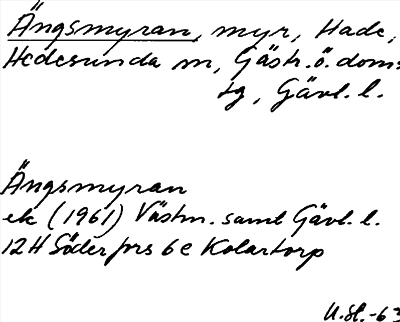 Ängsmyran, myr, Hade,
Hedesunda sn, Gästr. ö. doms.
tg, Gävl. l.
Ängsmyran
ek (1961) Västm. samt Gävl. l.
12H Söderfors 6e Kolartorp
U.Sl.-63